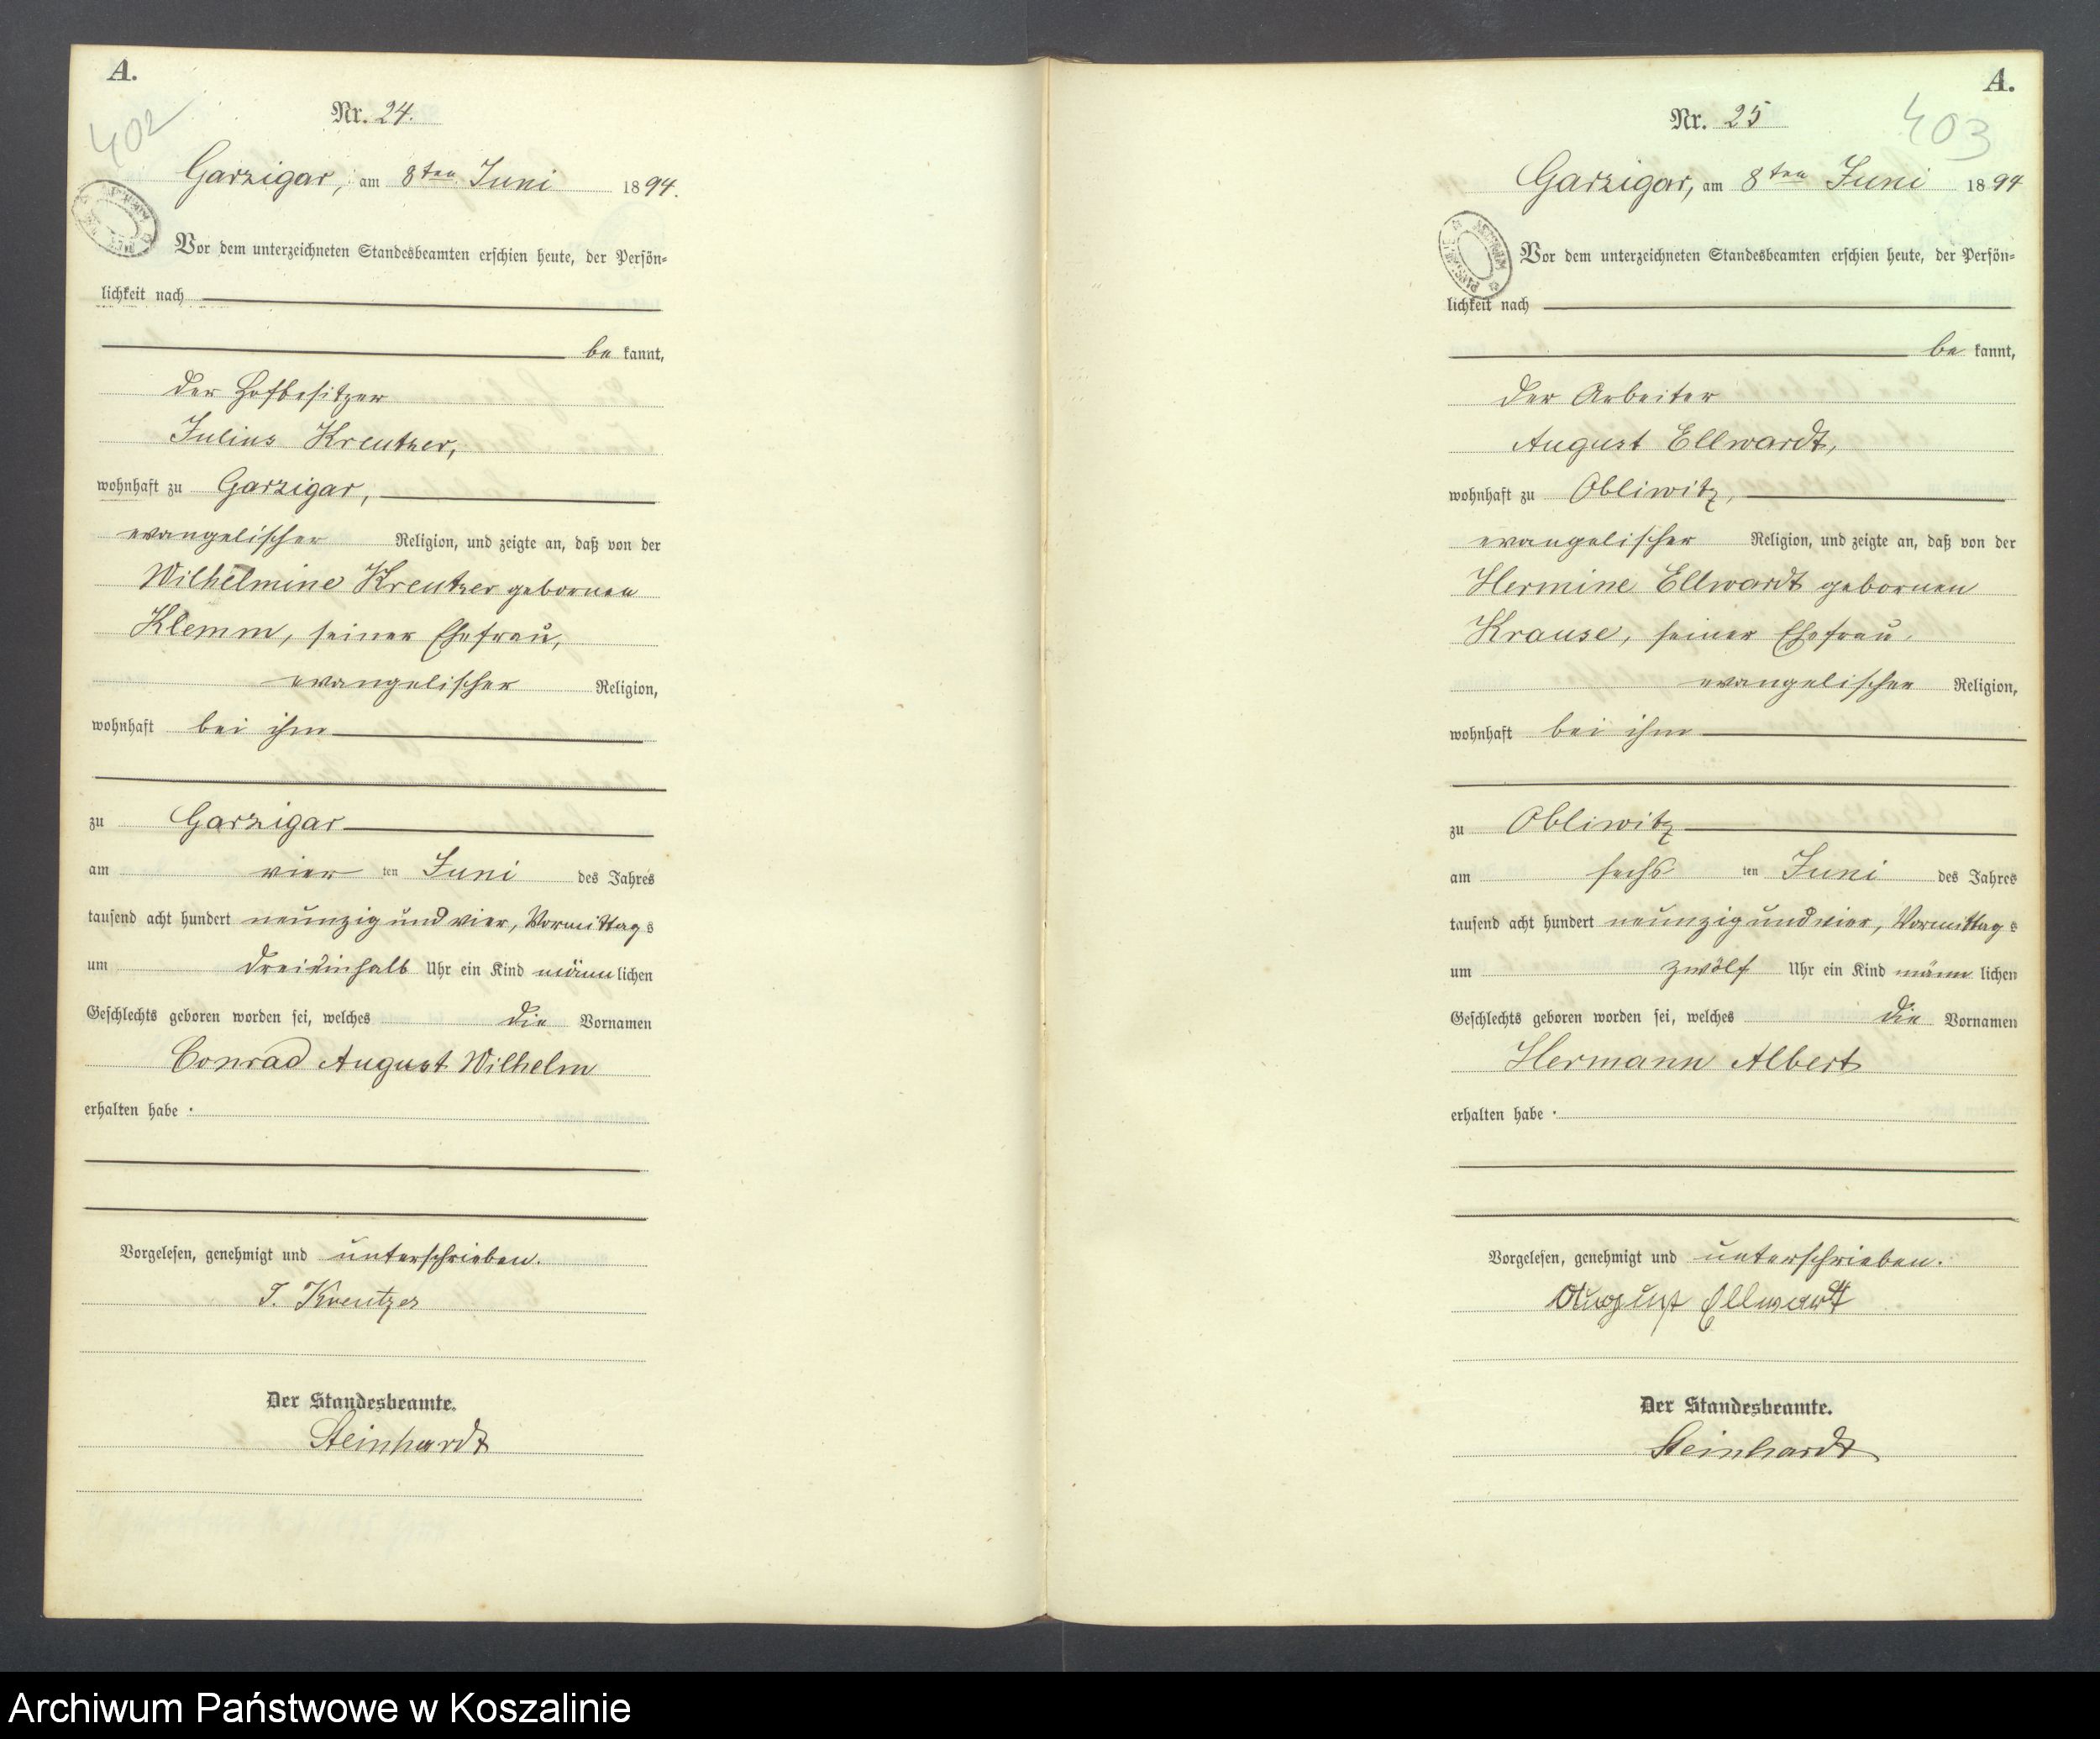 A.
402
Nr. 24.
Garzigar, am 8ten Juni 1894.
Vor dem unterzeichneten Standesbeamten erschien heute, der Persön-
lichkeit nach
be kannt,
der Hofbesitzer
Julius Kreutzer,
wohnhaft zu Garzigar,
evangelischer Religion, und zeigte an, daß von der
Wilhelmine Kreutzer gebornen
Klemm, seiner Ehefrau,
evangelischer Religion,
wohnhaft bei ihm
zu Garzigar
am vier ten Juni des Jahres
tausend acht hundert neunzig und vier, Vormittag s
um dreieinhalb Uhr ein Kind männ lichen
Geschlechts geboren worden sei, welches die Vornamen
Conrad August Wilhelm
erhalten habe .
Vorgelesen, genehmigt und unterschrieben.
J. Kreutzer
Der Standesbeamte.
Steinhardt
A.
403
Nr. 25
Garzigar, am 8ten Juni 1894
Vor dem unterzeichneten Standesbeamten erschien heute, der Persön-
lichkeit nach
be kannt,
der Arbeiter
August Ellwardt,
wohnhaft zu Obliwitz,
evangelischer Religion, und zeigte an, daß von der
Hermine Ellwardt gebornen
Krause, seiner Ehefrau,
evangelischer Religion,
wohnhaft bei ihm
zu Obliwitz
am sechs ten Juni des Jahres
tausend acht hundert neunzig und vier, Vormittag s
um zwölf Uhr ein Kind männ lichen
Geschlechts geboren worden sei, welches die Vornamen
Hermann Albert
erhalten habe .
Vorgelesen, genehmigt und unterschrieben.
August Ellwardt
Der Standesbeamte.
Steinhardt
Archiwum Państwowe w Koszalinie